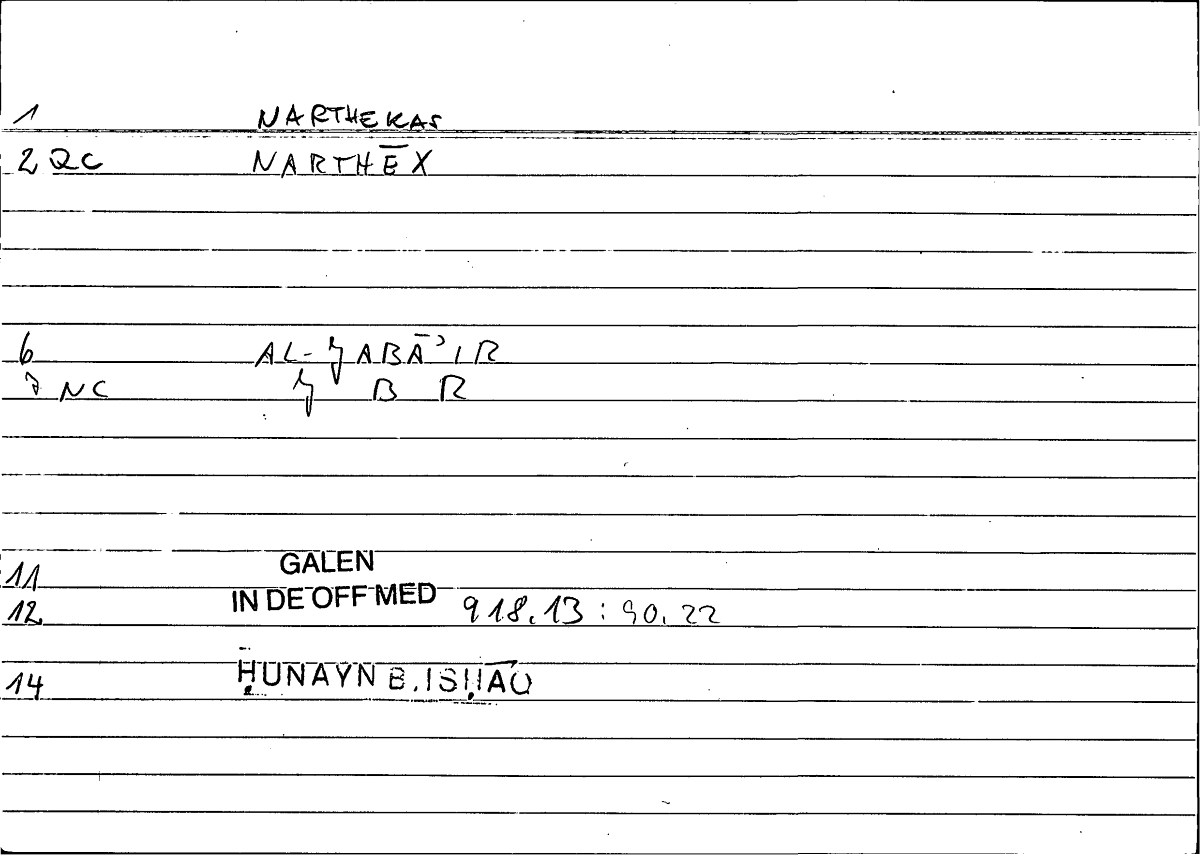 1 NARTHEKAS
2 QC NARTHĒX
6 AL-JABĀʾIR
7 NC J B R
11 GALEN
12 IN DE OFF MED 918.13 : 90.22
14 ḤUNAYN B. ISḤĀQ